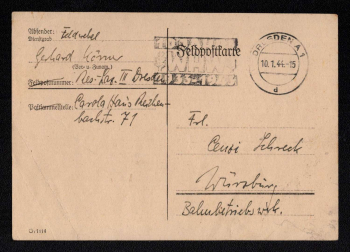 Absender: Feldwebel
Dienstgrad
Gerhard Körner
(Vor- u. Zuname)
Feldpostnummer: Res.-Laz. II Dresden
Postsammelstelle: Carola Haus Reichen-
bachstr. 71
Feldpostkarte
DRESDEN A 1
10.1.44.-15
d
Frl.
Cenzi Schreck
Würzburg
Bahnbetriebswk.